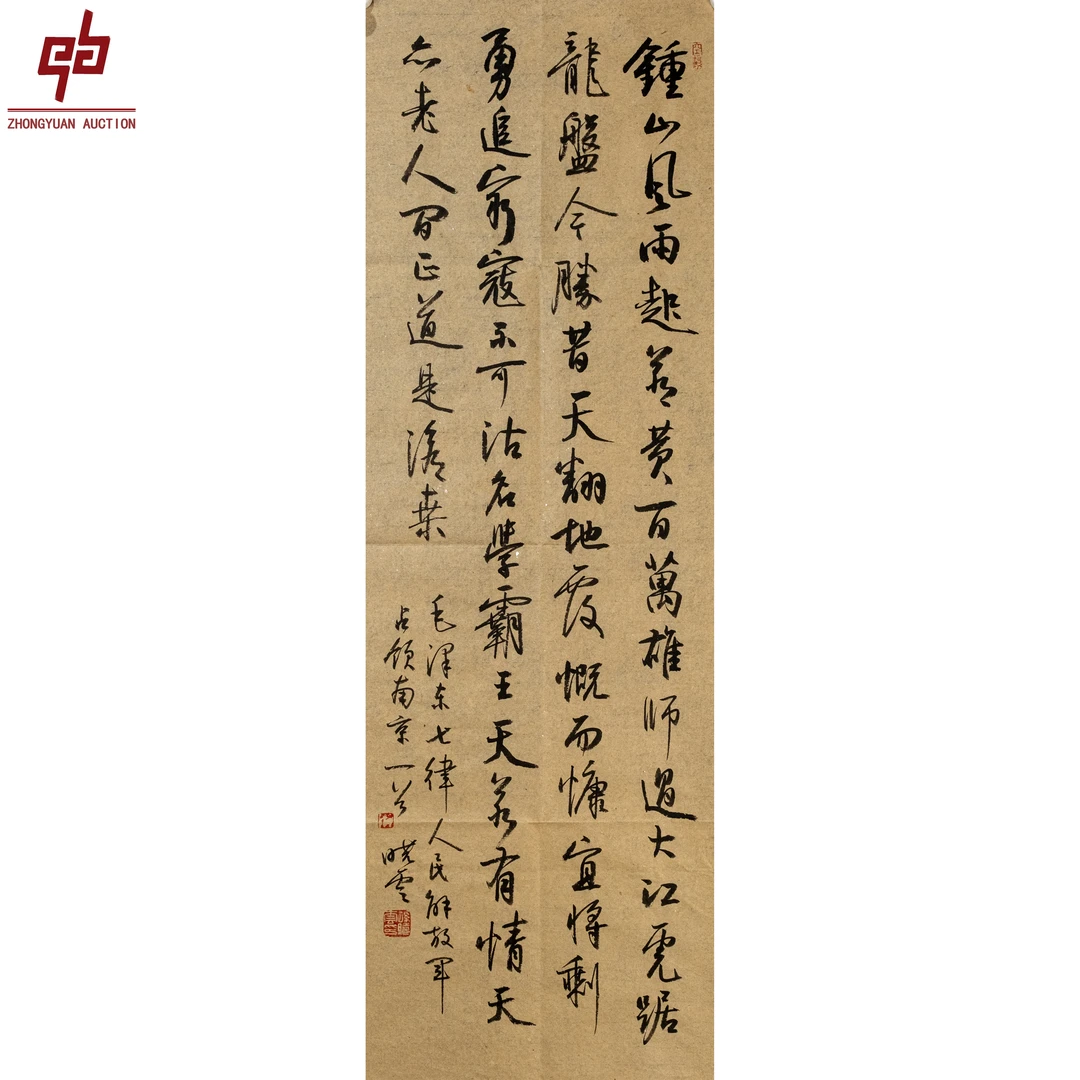 ZHONGYUAN AUCTION
鍾山風雨起蒼黄百萬雄師過大江虎踞
龍盤今勝昔天翻地覆慨而慷宜將剩
勇追窮寇不可沽名學霸王天若有情天
亦老人間正道是滄桑
毛澤东七律人民解放军
占领南京一首
晓雲